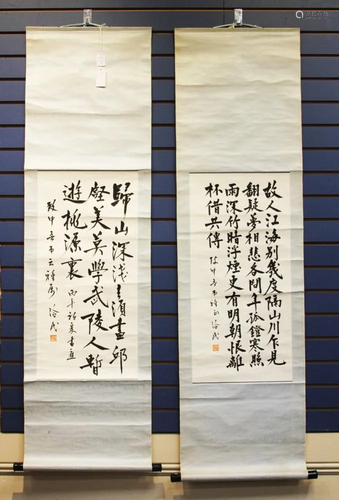 故人江海別幾度隔山川乍見
翻疑夢相悲各問年孤鐙寒照
雨深竹暗浮煙更有明朝恨離
杯惜共傳
歸山深淺去須盡邱
壑美莫學武陵人暫
遊桃源裏